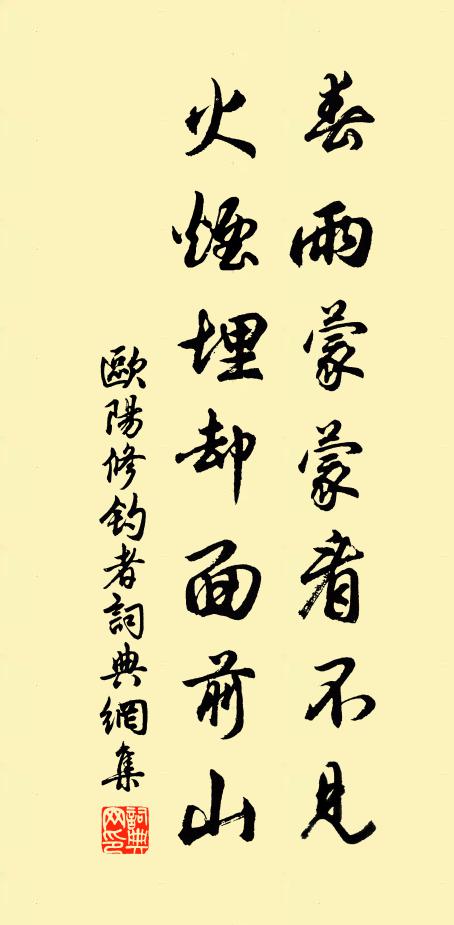 春雨蒙蒙看不見
火煙埋却面前山
歐陽修釣者詞典網集
詞典網印